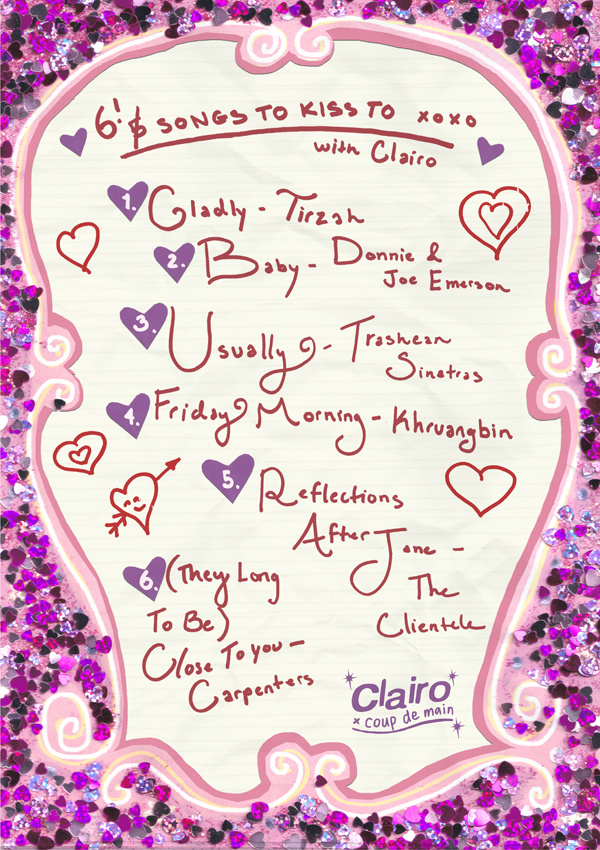 6! SONGS TO KISS TO xoxo
with Clairo
1. Gladly - Tirzah
2. Baby - Donnie &
Joe Emerson
3. Usually - Trashcan
Sinatras
4. Friday Morning - Khruangbin
5. Reflections
After Jane -
The
Clientele
6. (They Long
To Be)
Close To you -
Carpenters
Clairo
x coup de main